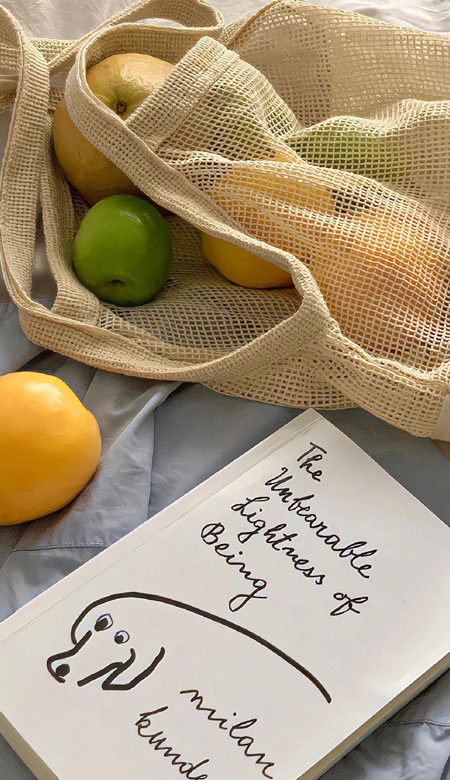 The
Unbearable
Lightness of
Being
milan
kunde